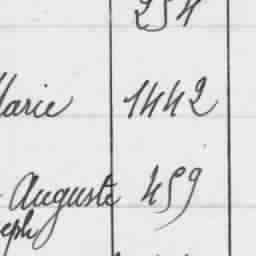 254
Marie 1442
Auguste 459
eph